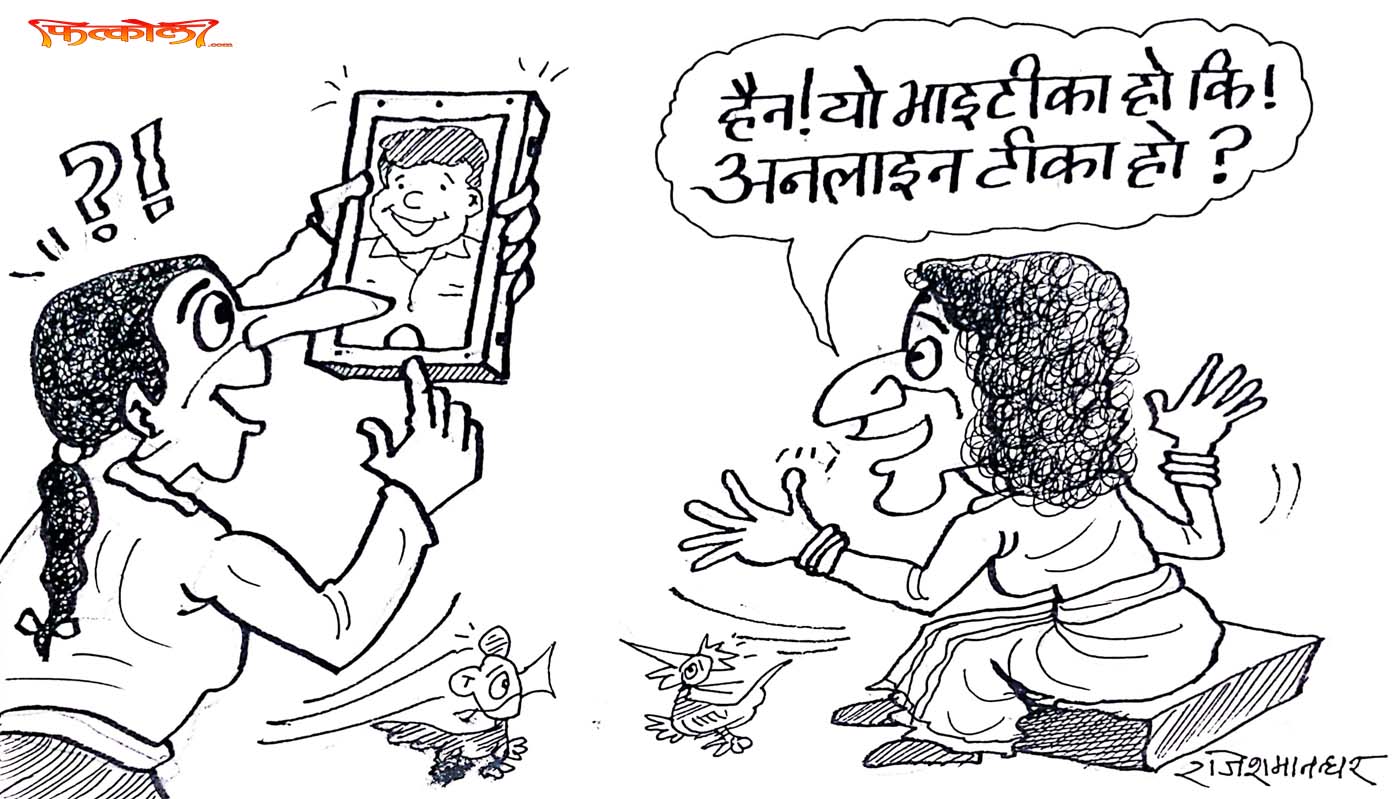 फित्कौली.com
?!
हैन! यो भाइटीका हो कि!
अनलाइन टीका हो ?
राजेशमानन्धर